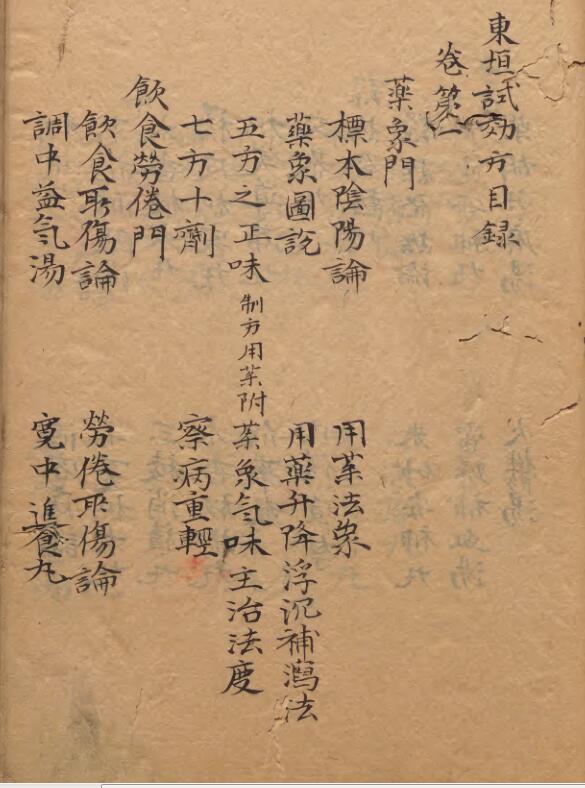 東垣試効方目録
卷第一
藥象門
標本陰陽論 用薬法象
藥象圖說 用藥升降浮沉補瀉法
五方之正味 制方用薬附 薬象气味主治法度
七方十劑 察病重輕
飲食勞倦門
飲食所傷論 勞倦所傷論
調中益气湯 寛中進食丸